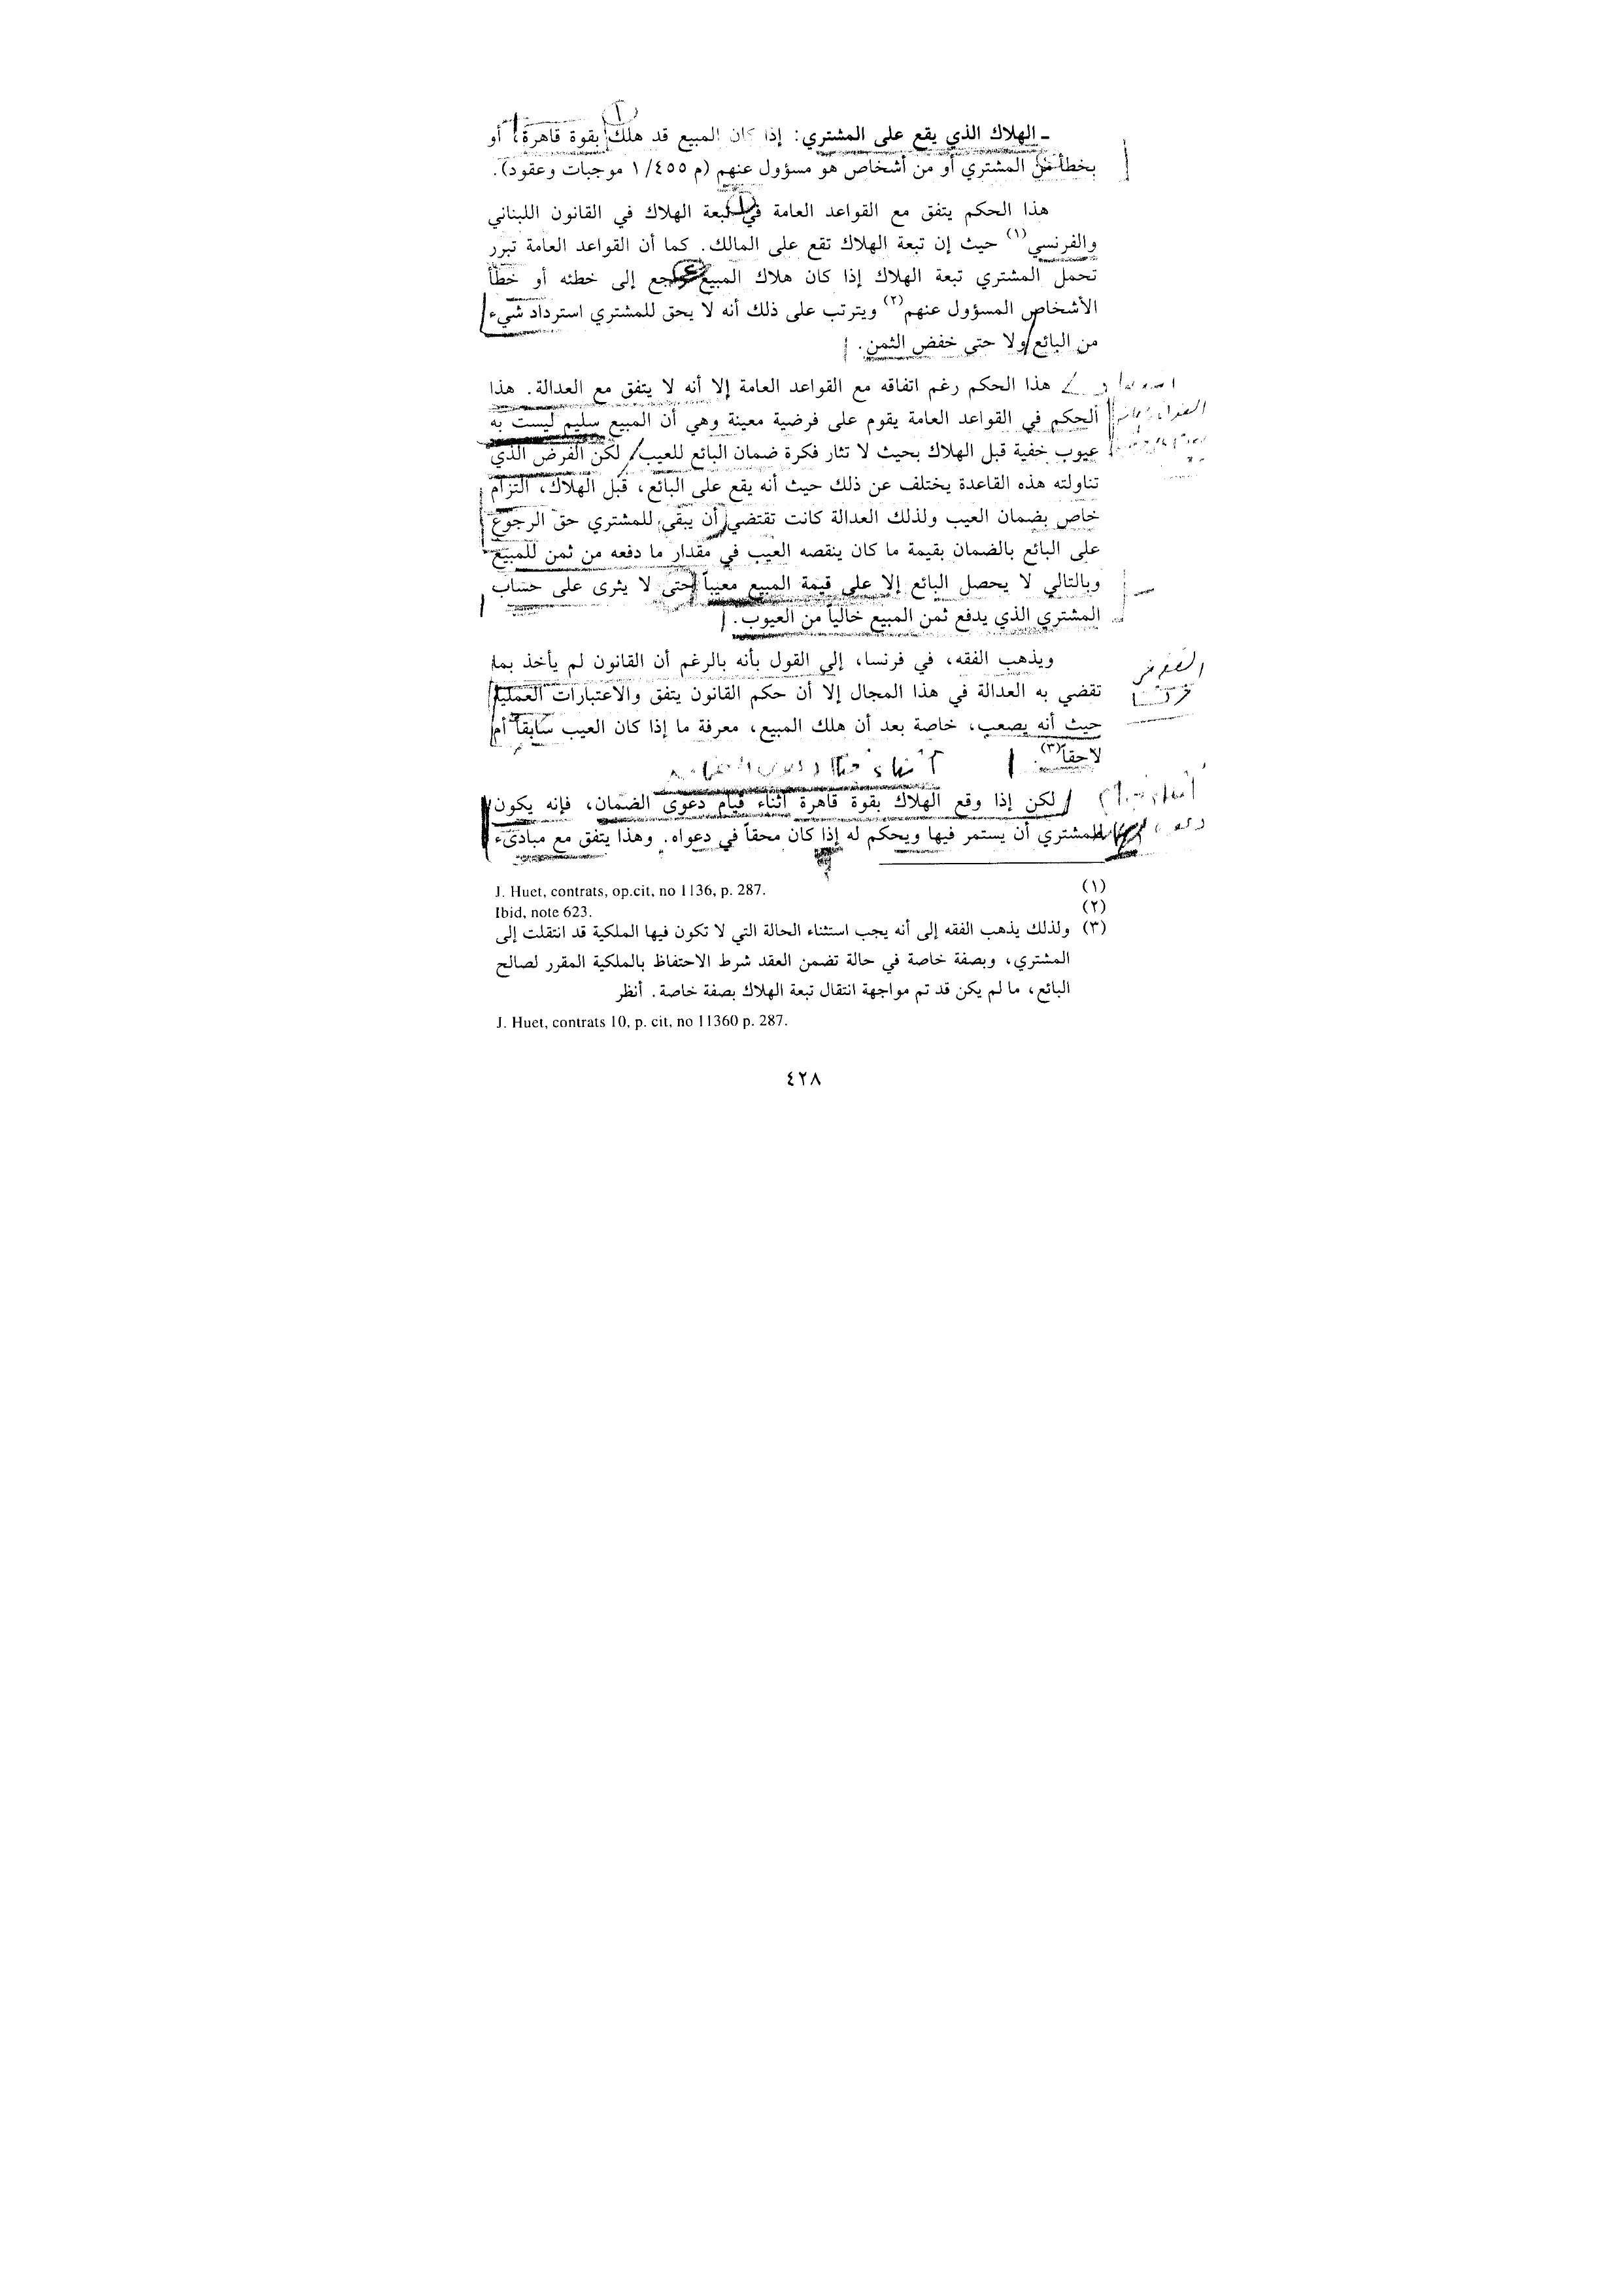 ـ الهلاك الذي يقع على المشتري: إذا كان المبيع قد هلك بقوة قاهرة، أو
بخطأ من المشتري أو من أشخاص هو مسؤول عنهم (م ٤٥٥/ ١ موجبات وعقود).
هذا الحكم يتفق مع القواعد العامة في تبعة الهلاك في القانون اللبناني
والفرنسي(١) حيث إن تبعة الهلاك تقع على المالك. كما أن القواعد العامة تبرر
تحمل المشتري تبعة الهلاك إذا كان هلاك المبيع راجع إلى خطئه أو خطأ
الأشخاص المسؤول عنهم(٢) ويترتب على ذلك أنه لا يحق للمشتري استرداد شيء
من البائع ولا حتى خفض الثمن.
هذا الحكم رغم اتفاقه مع القواعد العامة إلا أنه لا يتفق مع العدالة. هذا
الحكم في القواعد العامة يقوم على فرضية معينة وهي أن المبيع سليم ليست به
عيوب خفية قبل الهلاك بحيث لا تثار فكرة ضمان البائع للعيب، لكن الفرض الذي
تناولته هذه القاعدة يختلف عن ذلك حيث أنه يقع على البائع، قبل الهلاك، التزام
خاص بضمان العيب ولذلك العدالة كانت تقتضي أن يبقى للمشتري حق الرجوع
على البائع بالضمان بقيمة ما كان ينقصه العيب في مقدار ما دفعه من ثمن للمبيع
وبالتالي لا يحصل البائع إلا على قيمة المبيع معيباً حتى لا يثرى على حساب
المشتري الذي يدفع ثمن المبيع خالياً من العيوب.
ويذهب الفقه، في فرنسا، إلى القول بأنه بالرغم أن القانون لم يأخذ بما
تقضي به العدالة في هذا المجال إلا أن حكم القانون يتفق والاعتبارات العملية
حيث أنه يصعب، خاصة بعد أن هلك المبيع، معرفة ما إذا كان العيب سابقاً أم
لاحقاً(٣).
لكن إذا وقع الهلاك بقوة قاهرة أثناء قيام دعوى الضمان، فإنه يكون
للمشتري أن يستمر فيها ويحكم له إذا كان محقاً في دعواه. وهذا يتفق مع مبادىء
(١) J. Huet, contrats, op.cit, no 1136, p. 287.
(٢) Ibid, note 623.
(٣) ولذلك يذهب الفقه إلى أنه يجب استثناء الحالة التي لا تكون فيها الملكية قد انتقلت إلى
المشتري، وبصفة خاصة في حالة تضمن العقد شرط الاحتفاظ بالملكية المقرر لصالح
البائع، ما لم يكن قد تم مواجهة انتقال تبعة الهلاك بصفة خاصة. أنظر
J. Huet, contrats 10, p. cit, no 11360 p. 287.
٤٢٨